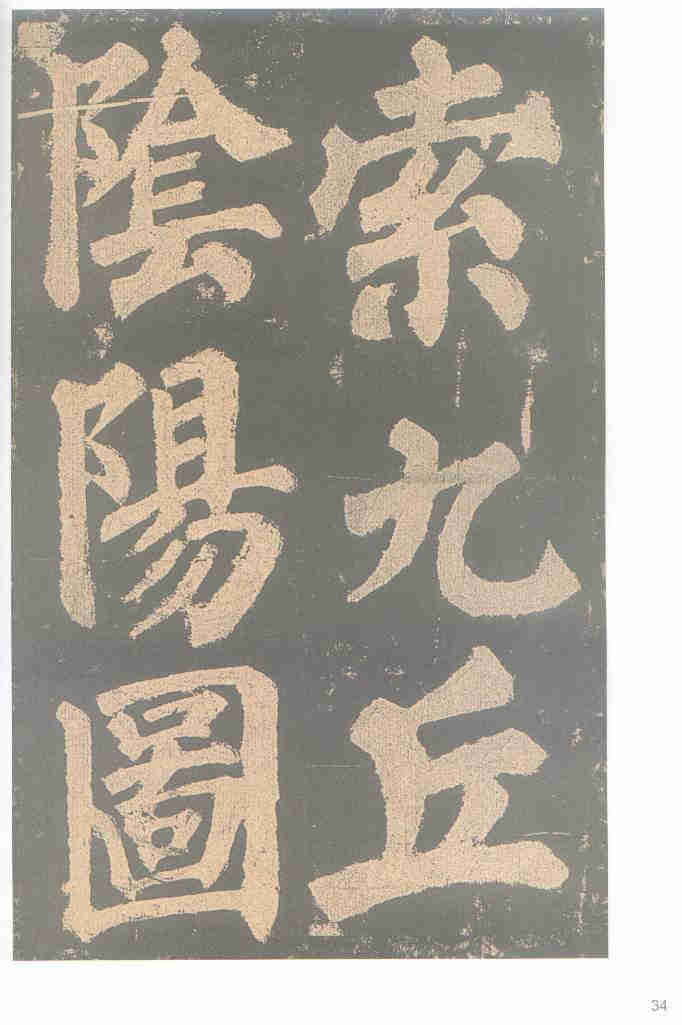 索九丘
陰陽圖
34